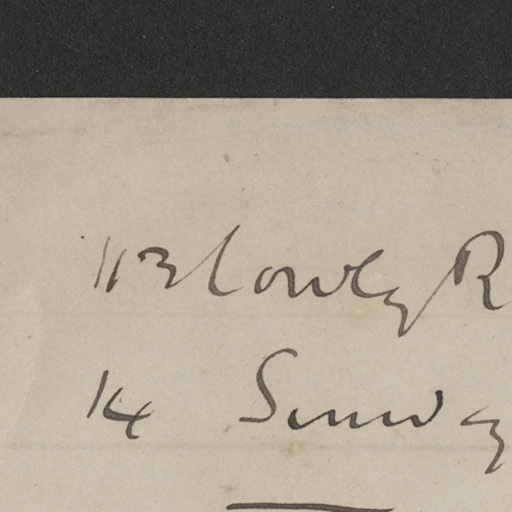 113 Cowley R
14 Sunday